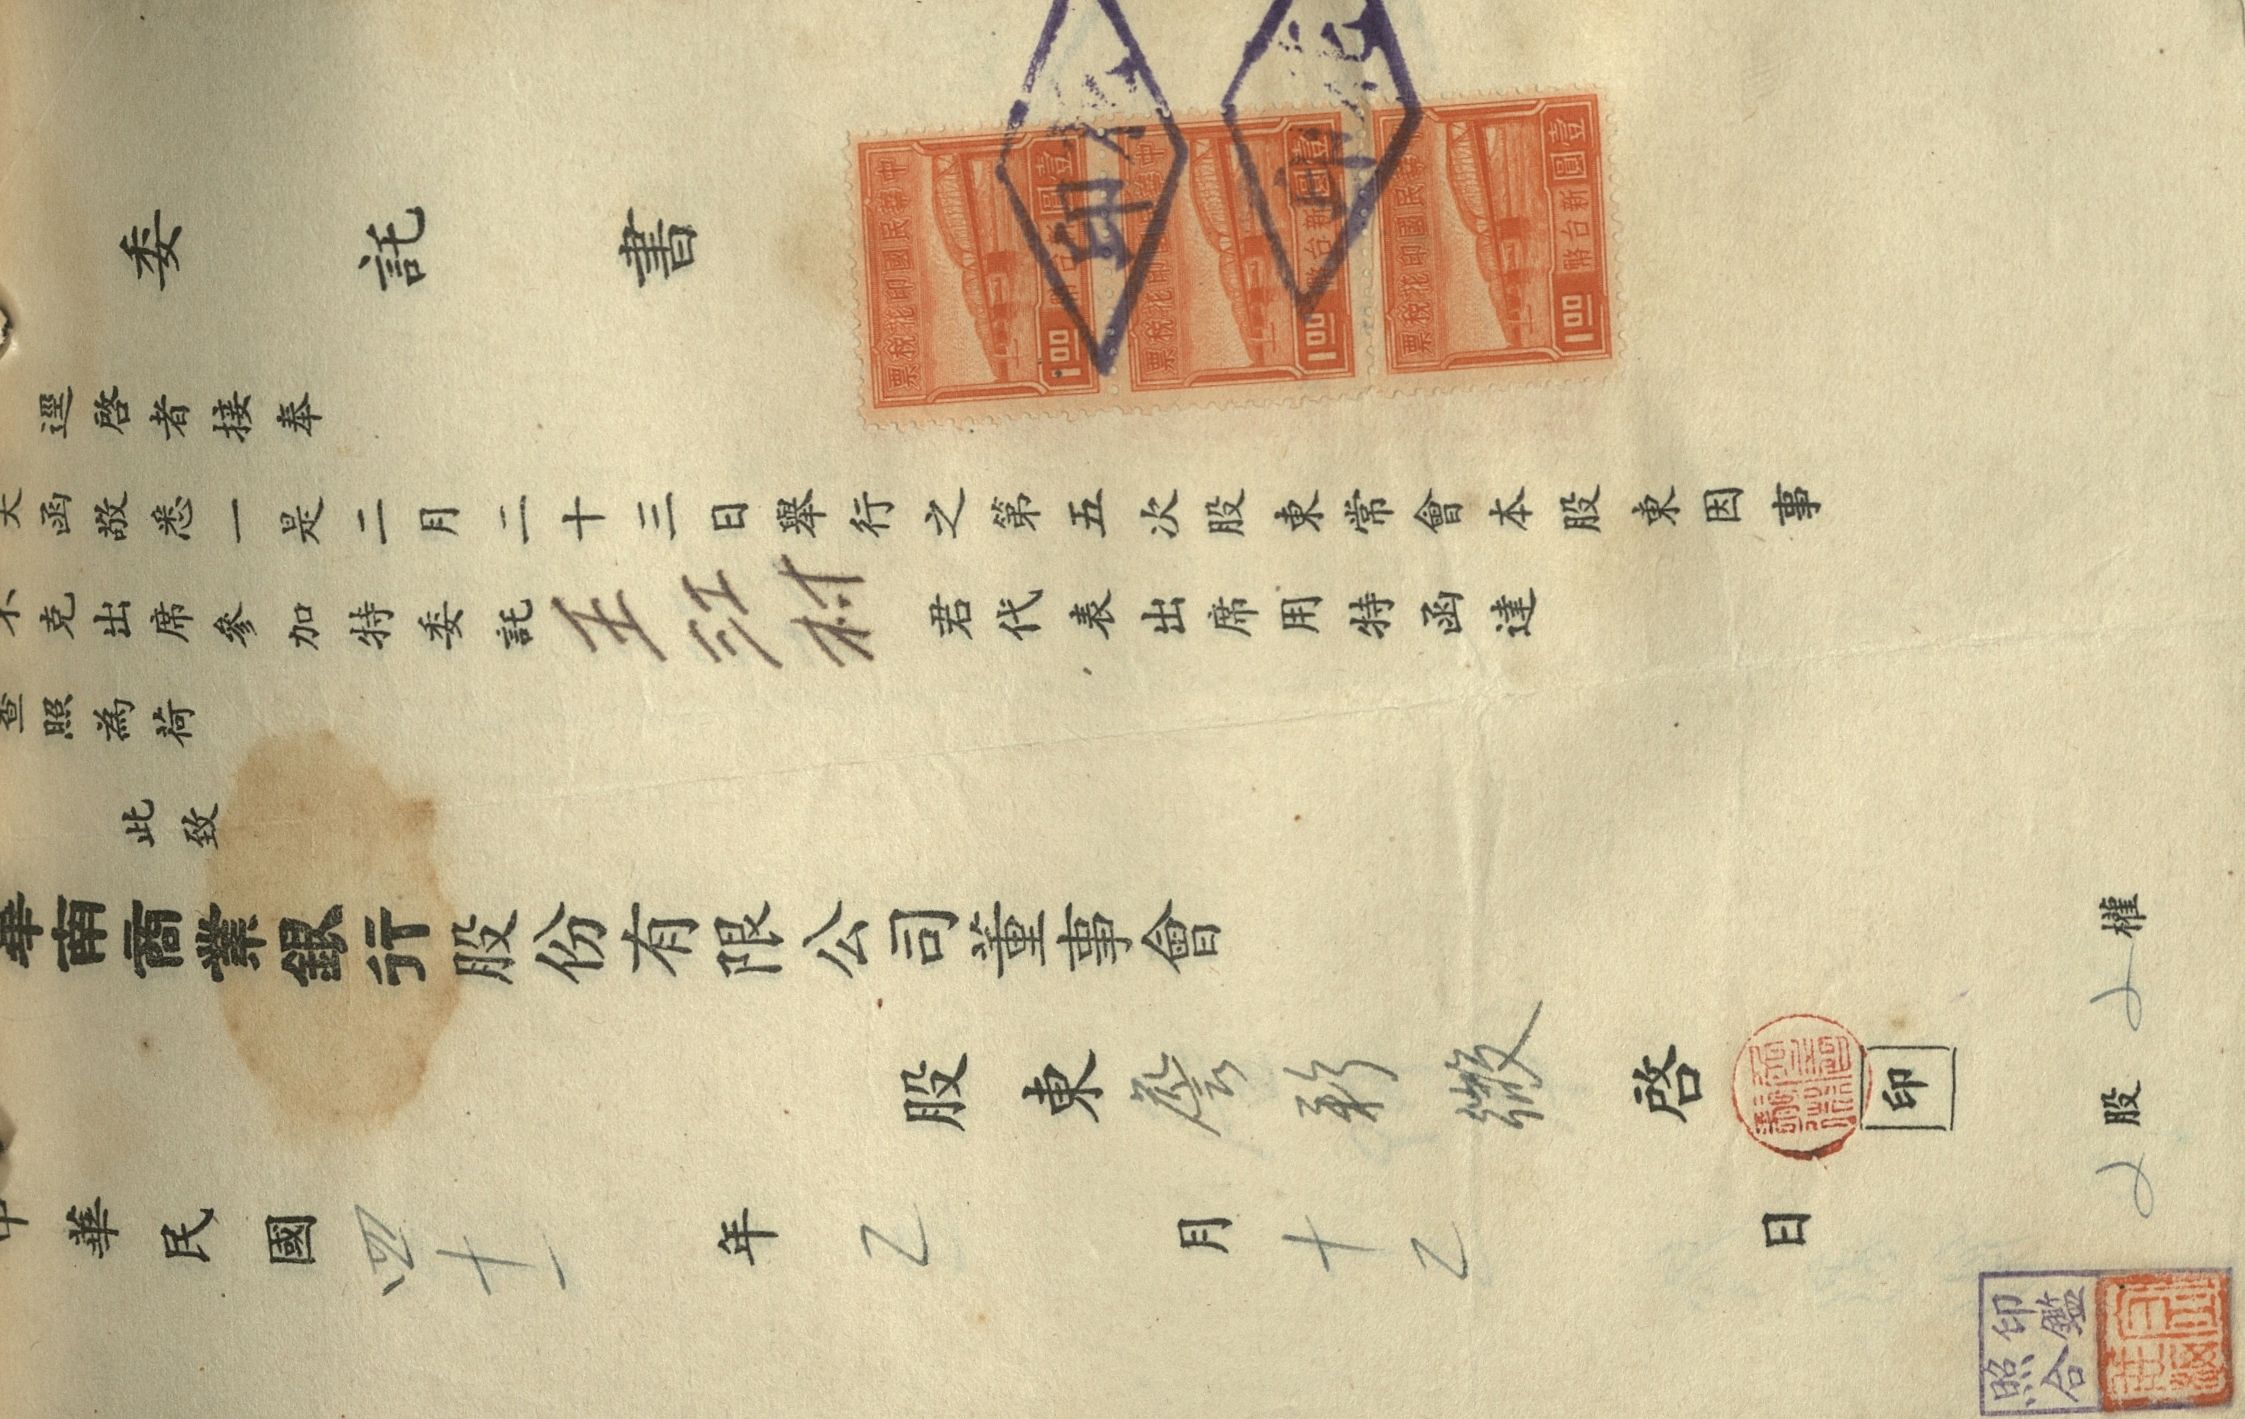 委託書
逕啓者接奉
大函敬悉一是二月二十三日舉行之第五次股東常會本股東因事
不克出席參加特委託王江村君代表出席用特函達
查照為荷
此致
華南商業銀行股份有限公司董事會
股東 啓
印
中華民國四十一年乙月十乙日
股 權
印鑑
照合
中華民國印花稅票
壹圓
新台幣
1.00
中華民國印花稅票
壹圓
新台幣
1.00
中華民國印花稅票
壹圓
新台幣
1.00
印